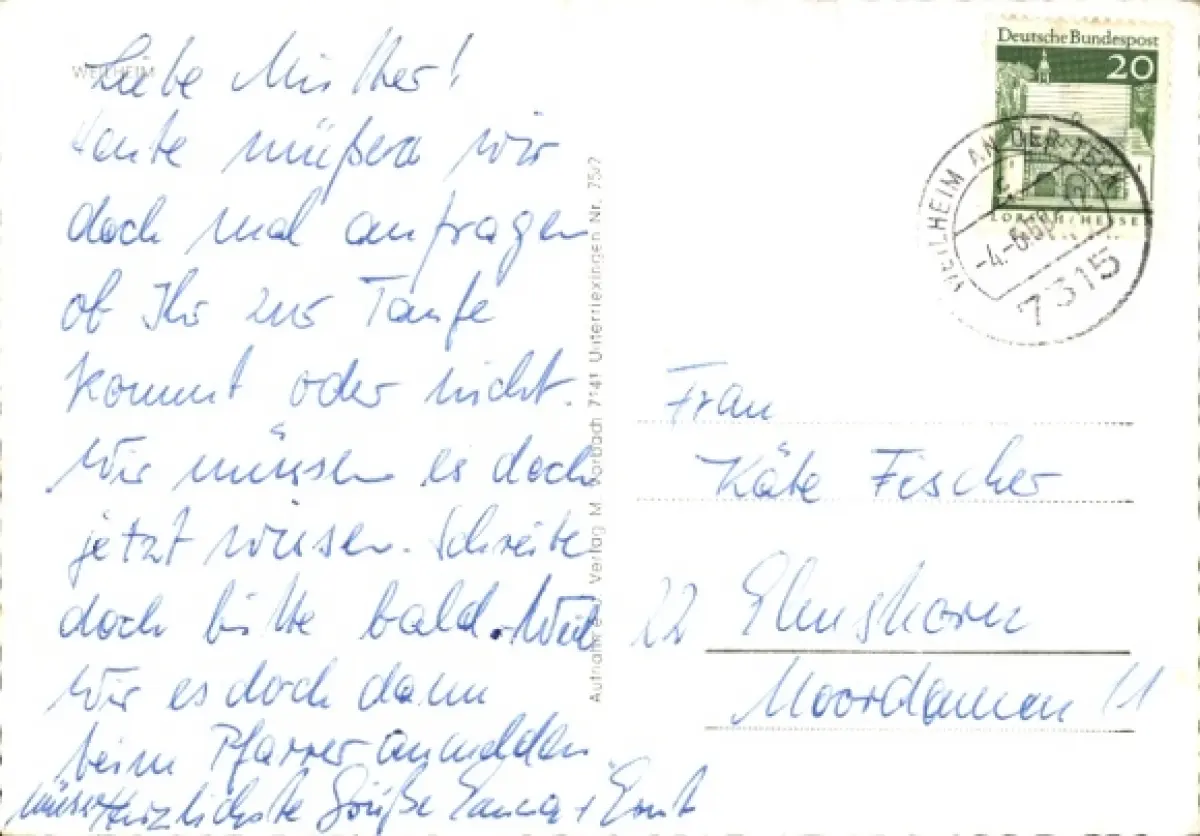 WEILHEIM
Liebe Mutter!
Heute müßen wir
doch mal anfragen
ob Ihr zur Taufe
kommt oder nicht.
Wir müssen es doch
jetzt wissen. Schreibe
doch bitte bald. Weil
wir es doch dann
beim Pfarrer anmelden
müssen Herzlichste Grüße + Ernst
Aufnahme u. Verlag M. 7141 Unterriexingen Nr.
Deutsche Bundespost
20
LORSCH/HESSEN
WEILHEIM AN DER TECK
7315
Frau
Käte Fischer
22 Elmshorn
11